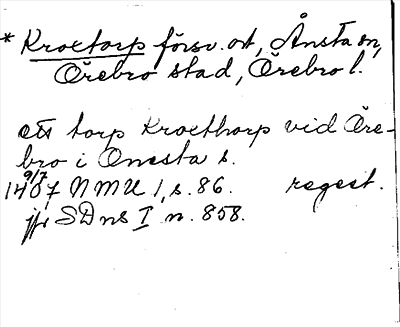 * Kroetorp försv. ort, Ånsta sn,
Örebro stad, Örebro l.
ett torp Kroethorp vid Öre-
bro i Onesta s.
9/7
1407 NMU 1, s. 86. regest.
jfr SDns I n. 858.